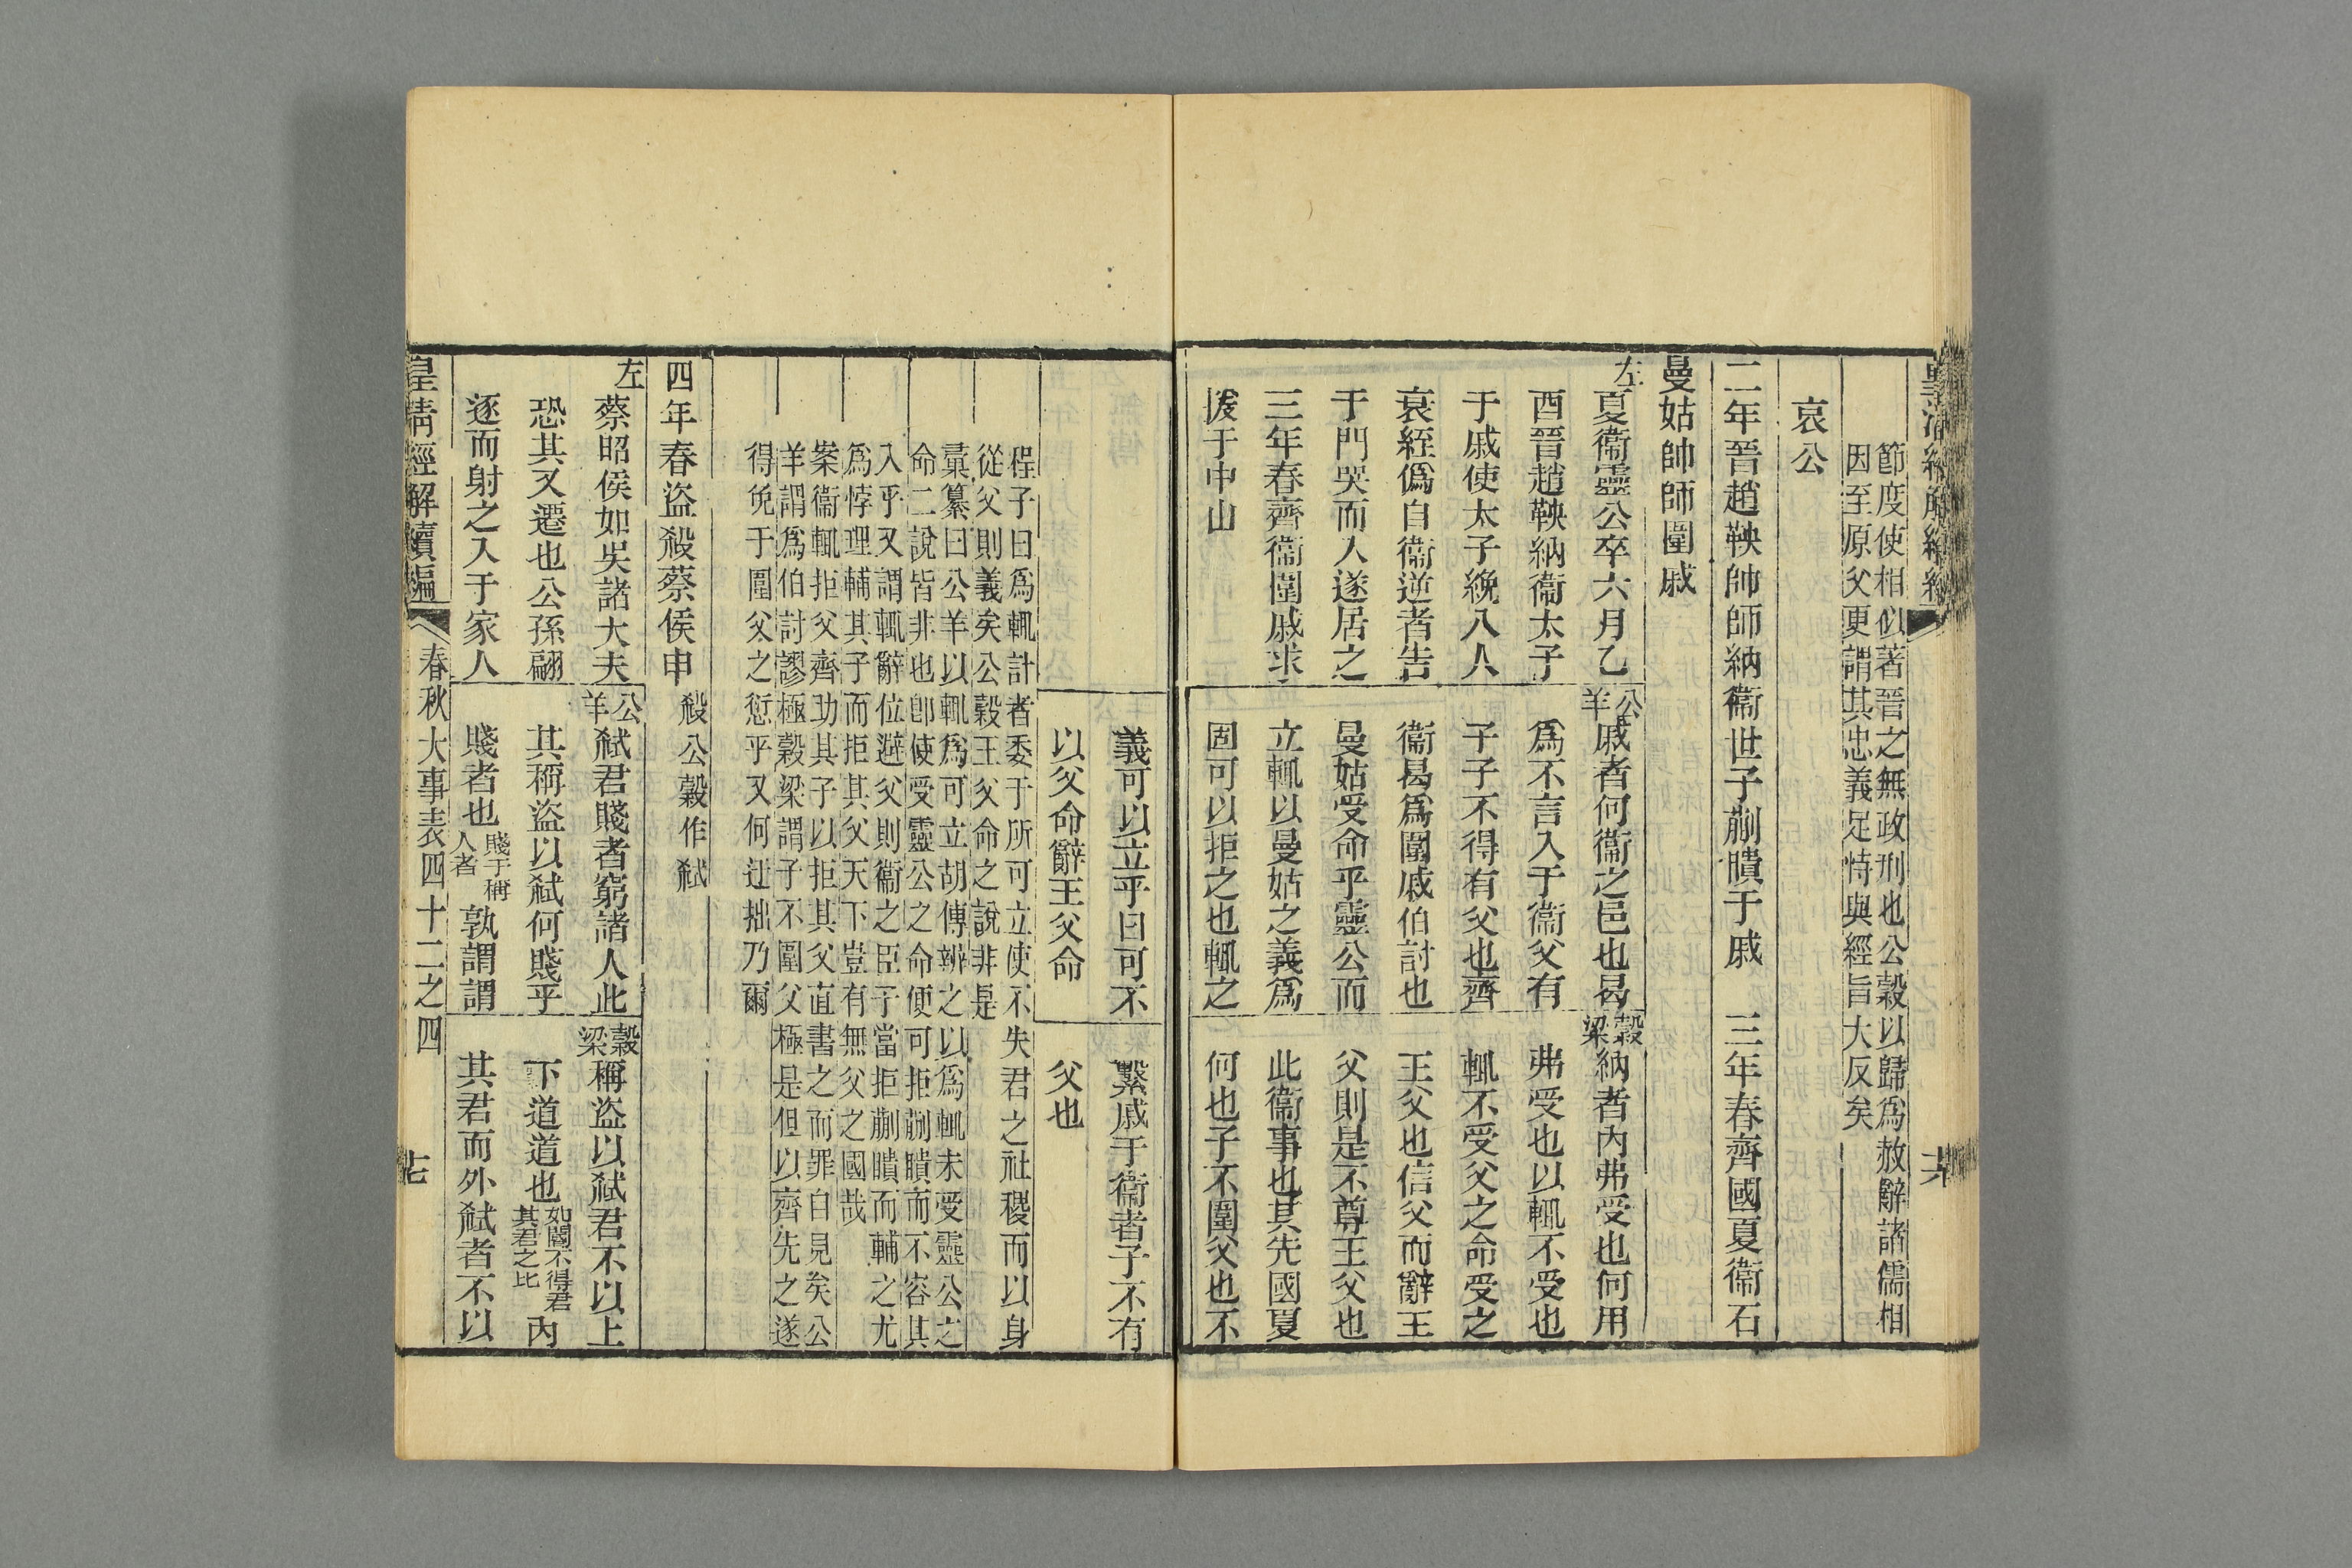 節度使相似著晉之無政刑也公穀以歸為赦辭諸儒相
因至原父更謂其忠義足恃與經旨大反矣
哀公
二年晉趙鞅帥師納衞世子蒯聵于戚　三年春齊國夏衞石
曼姑帥師圍戚
左
夏衞靈公卒六月乙
酉晉趙鞅納衞太子
于戚使太子絻八人
衰絰僞自衞逆者告
于門哭而入遂居之
三年春齊衞圍戚求
援于中山
公羊
戚者何衞之邑也曷
爲不言入于衞父有
子子不得有父也齊
衞曷爲圍戚伯討也
曼姑受命乎靈公而
立輒以曼姑之義爲
固可以拒之也輒之
穀梁
納者內弗受也何用
弗受也以輒不受也
輒不受父之命受之
王父也信父而辭王
父則是不尊王父也
此衞事也其先國夏
何也子不圍父也不
義可以立乎曰可不
以父命辭王父命
繫戚于衞者子不有
父也
程子曰爲輒計者委于所可立使不失君之社稷而以身
從父則義矣公穀王父命之說非是
彙纂曰公羊以輒爲可立胡傳辨之以爲輒未受靈公之
命二說皆非也卽使受靈公之命便可拒蒯聵而不容其
入乎又謂輒辭位避父則衞之臣子當拒蒯聵而輔之尤
爲悖理輔其子而拒其父天下豈有無父之國哉
案衞輒拒父齊助其子以拒其父直書之而罪自見矣公
羊謂爲伯討謬極穀梁謂子不圍父極是但以齊先之遂
得免于圍父之愆乎又何迂拙乃爾
四年春盜殺蔡侯申　殺公穀作弒
左
蔡昭侯如吳諸大夫
恐其又遷也公孫翩
逐而射之入于家人
公羊
弒君賤者窮諸人此
其稱盜以弒何賤乎
賤者也賤于稱人者孰謂謂
穀梁
稱盜以弒君不以上
下道道也如閽不得君其君之比內
其君而外弒者不以
皇清經解續編　春秋大事表四十二之四　十七